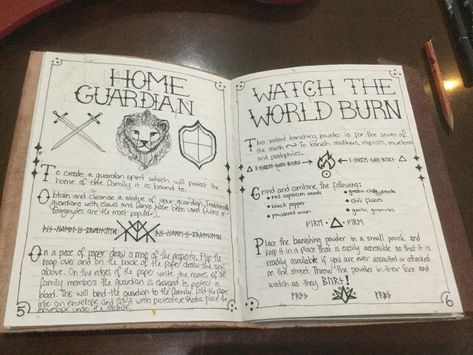 HOME
GUARDIAN
To create a guardian spirit which will protect the
home of the family it is bound to.
Obtain and cleanse a statue of your guardian. Traditionally
guardians with claws and fangs have been used (Lions or
Gargoyles are the most popular).
On a piece of paper draw a map of the property. Flip the
map over and on the back of the paper draw the sigil
above. On the edges of the paper write the names of all
family members the guardian is charged to protect in
blood. This will bind the guardian to the family. Fold the paper
into an envelope and fill it with protective herbs, place the
envelope under the statue.
5
WATCH THE
WORLD BURN
This violent banishing powder is for the scum of
the earth To banish stalkers, rapists, murderers
and paedophiles.
Grind and combine the following:
red capsicum seeds
green chilli seeds
black pepper
chili flakes
powdered onion
garlic granules
Place the banishing powder in a small pouch and
keep it in a place that is easily accessible so that it is
readily available if you are ever assaulted or attacked
on the street. Throw the powder in their face and
watch as they BURN!
6